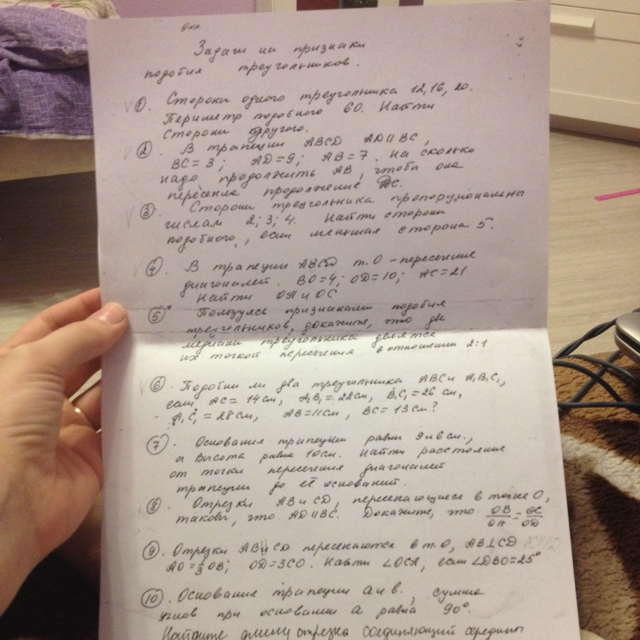 Задачи на признаки
подобия треугольников.
1. Стороны одного треугольника 12, 16, 20.
Периметр подобного 60. Найти
стороны другого.
2. В трапеции ABCD AD || BC,
BC = 3; AD = 9; AB = 7. На сколько
надо продолжить AB, чтобы она
пересекла продолжение DC.
3. Стороны треугольника пропорциональны
числам 2; 3; 4. Найти стороны
подобного, если меньшая сторона 5.
4. В трапеции ABCD т. O - пересечение
диагоналей. BO = 4; OD = 10; AC = 21
Найти OA и OC
5.* Пользуясь признаками подобия
треугольников, докажите, что
медианы треугольника делятся
их точкой пересечения в отношении 2:1
6. Подобны ли два треугольника ABC и A₁B₁C₁,
если AC = 14 см, A₁B₁ = 22 см, B₁C₁ = 26 см,
A₁C₁ = 28 см, AB = 11 см, BC = 13 см?
7. Основания трапеции равны 9 и 6 см.,
а высота равна 10 см. Найти расстояние
от точки пересечения диагоналей
трапеции до её оснований.
8. Отрезки AB и CD, пересекающиеся в точке O,
таковы, что AD || BC. Докажите, что OB/OA = OC/OD
9. Отрезки AB и CD пересекаются в т. O, AB ⊥ CD
AO = 3OB; OD = 3CO. Найти ∠OCA, если ∠DBO = 25°
10. Основание трапеции a и b, сумма
углов при основании a равна 90°.
Найдите длину отрезка соединяющий середины